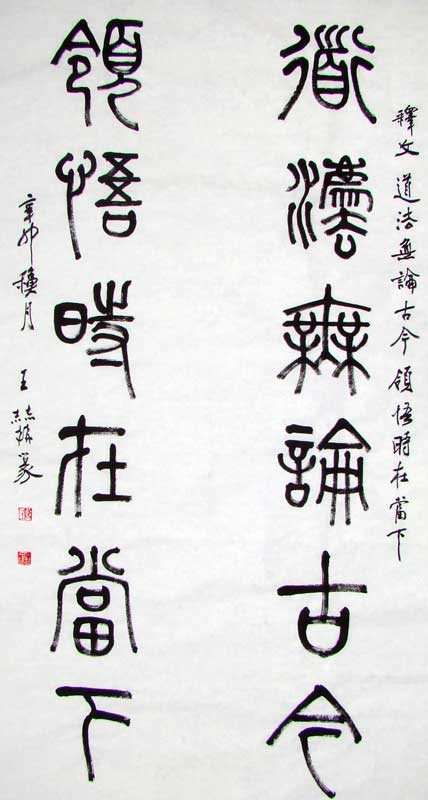 釋文 道法無論古今領悟時在當下
道法無論古今
領悟時在當下
辛卯月 王篆